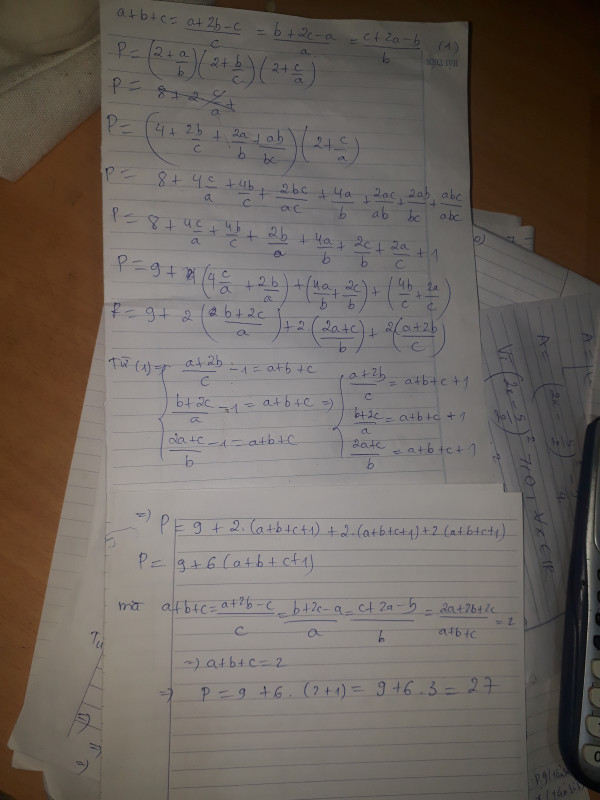 a+b+c = (a+2b-c)/c = (b+2c-a)/a = (c+2a-b)/b (1)
P = (2+a/b)(2+b/c)(2+c/a)
P = 8+2 c/a +
P = (4+2b/c+2a/b+ab/bc)(2+c/a)
P = 8+4c/a+4b/c+2bc/ac+4a/b+2ac/ab+2ab/bc+abc/abc
P = 8+4c/a+4b/c+2b/a+4a/b+2c/b+2a/c+1
P = 9+(4c/a+2b/a)+(4a/b+2c/b)+(4b/c+2a/c)
P = 9+2((2b+2c)/a)+2((2a+c)/b)+2((a+2b)/c)
Từ (1)=> { (a+2b)/c -1 = a+b+c => { (a+2b)/c = a+b+c+1
(b+2c)/a -1 = a+b+c (b+2c)/a = a+b+c+1
(2a+c)/b -1 = a+b+c (2a+c)/b = a+b+c+1
=> P = 9+2.(a+b+c+1)+2.(a+b+c+1)+2(a+b+c+1)
P = 9+6(a+b+c+1)
mà a+b+c = (a+2b-c)/c = (b+2c-a)/a = (c+2a-b)/b = (2a+2b+2c)/(a+b+c) = 2
=> a+b+c = 2
=> P = 9+6.(2+1) = 9+6.3 = 27